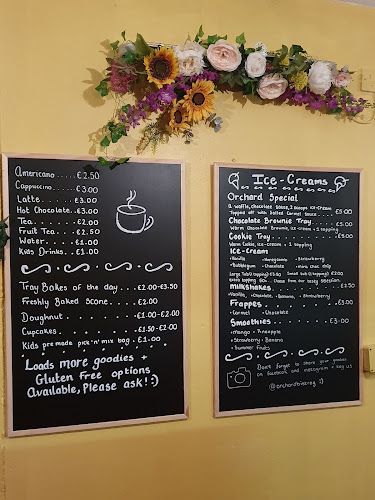 Americano......£2.50
Cappuccino.....£3.00
Latte........£3.00
Hot Chocolate...£3.00
Tea.......£2.00
Fruit Tea...£2.50
Water.....£1.00
Kids Drinks..£1.00
Tray Bakes of the day...£2.00-£3.50
Freshly Baked Scone....£2.00
Doughnut.......£1.00-£2.00
Cupcakes.......£1.50-£2.00
Kids pre made pick'n'mix bag.£1.00
Loads more goodies +
Gluten Free options
Available, Please ask! :)
Ice-Creams
Orchard Special
a waffle, chocolate sauce, 2 scoops ice-cream
Topped off with Salted Caramel Sauce.....£5.00
Chocolate Brownie Tray....£5.00
Warm Chocolate Brownie, ice-cream + 1 topping
Cookie Tray.......£5.00
Warm Cookie, ice-cream + 1 topping
Ice-Cream
•Vanilla •Honeycomb •Strawberry
•Bubblegum •Chocolate
Milkshakes......£3.50
•Vanilla •Chocolate •Banana •Strawberry
Frappes.......£3.50
•Caramel •Chocolate
Smoothies.......£3.00
•Mango •Pineapple
•Strawberry •Banana
•Summer Fruits
Don't forget to share your goodies
on facebook and instagram + tag us